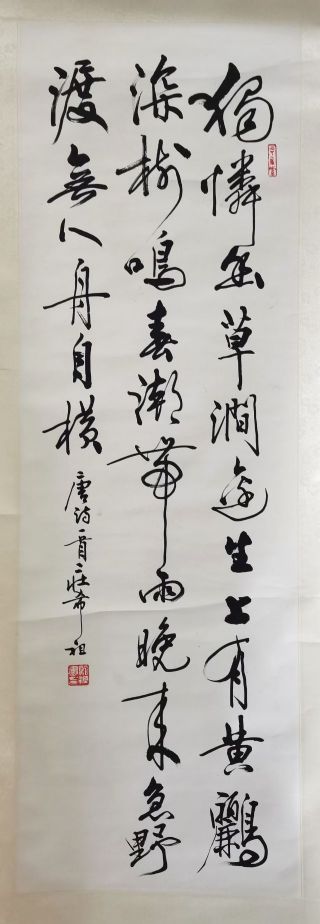 獨憐幽草澗邊生上有黃鸝
深樹鳴春潮帶雨晚來急野
渡無人舟自橫
唐詩一首莊希祖